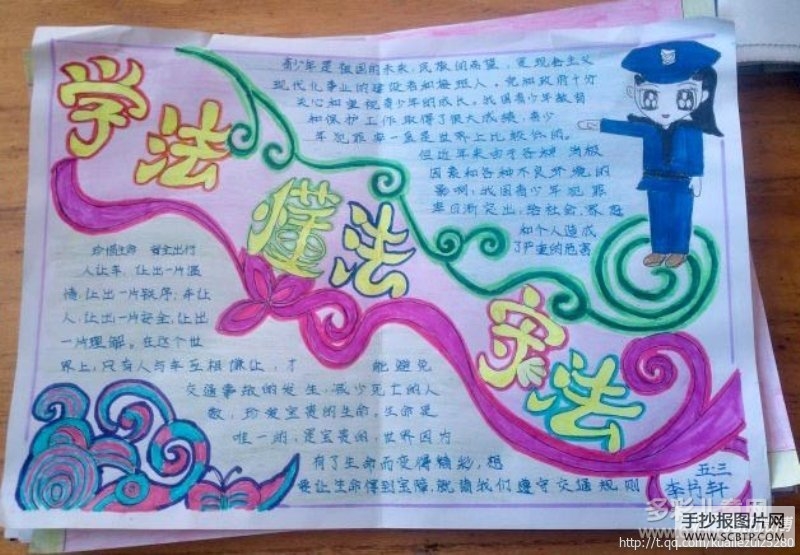 学法
懂法
守法
青少年是祖国的未来，民族的希望，是现社主义
现代化事业的建设者和接班人。党和政府十分
关心和重视青少年的成长。我国青少年教育
和保护工作取得了很大成绩，青少
年犯罪率一直是世界上比较低的。
但近年来由于各种消极
因素和各种不良环境的
影响，我国青少年犯罪
率日渐突出，给社会、家庭
和个人造成
了严重的危害
珍惜生命 安全出行
人让车，让出一片温
情，让出一片秩序；车让
人，让出一片安全，让出
一片理解。在这个世
界上，只有人与车互相谦让，才 能避免
交通事故的发生，减少死亡的人
数，珍爱宝贵的生命。生命是
唯一的，是宝贵的，世界因为
有了生命而变得精彩，想
要让生命得到宝障，就请我们遵守交通规则
五·三
手抄报图片网
WWW.SCBTP.COM